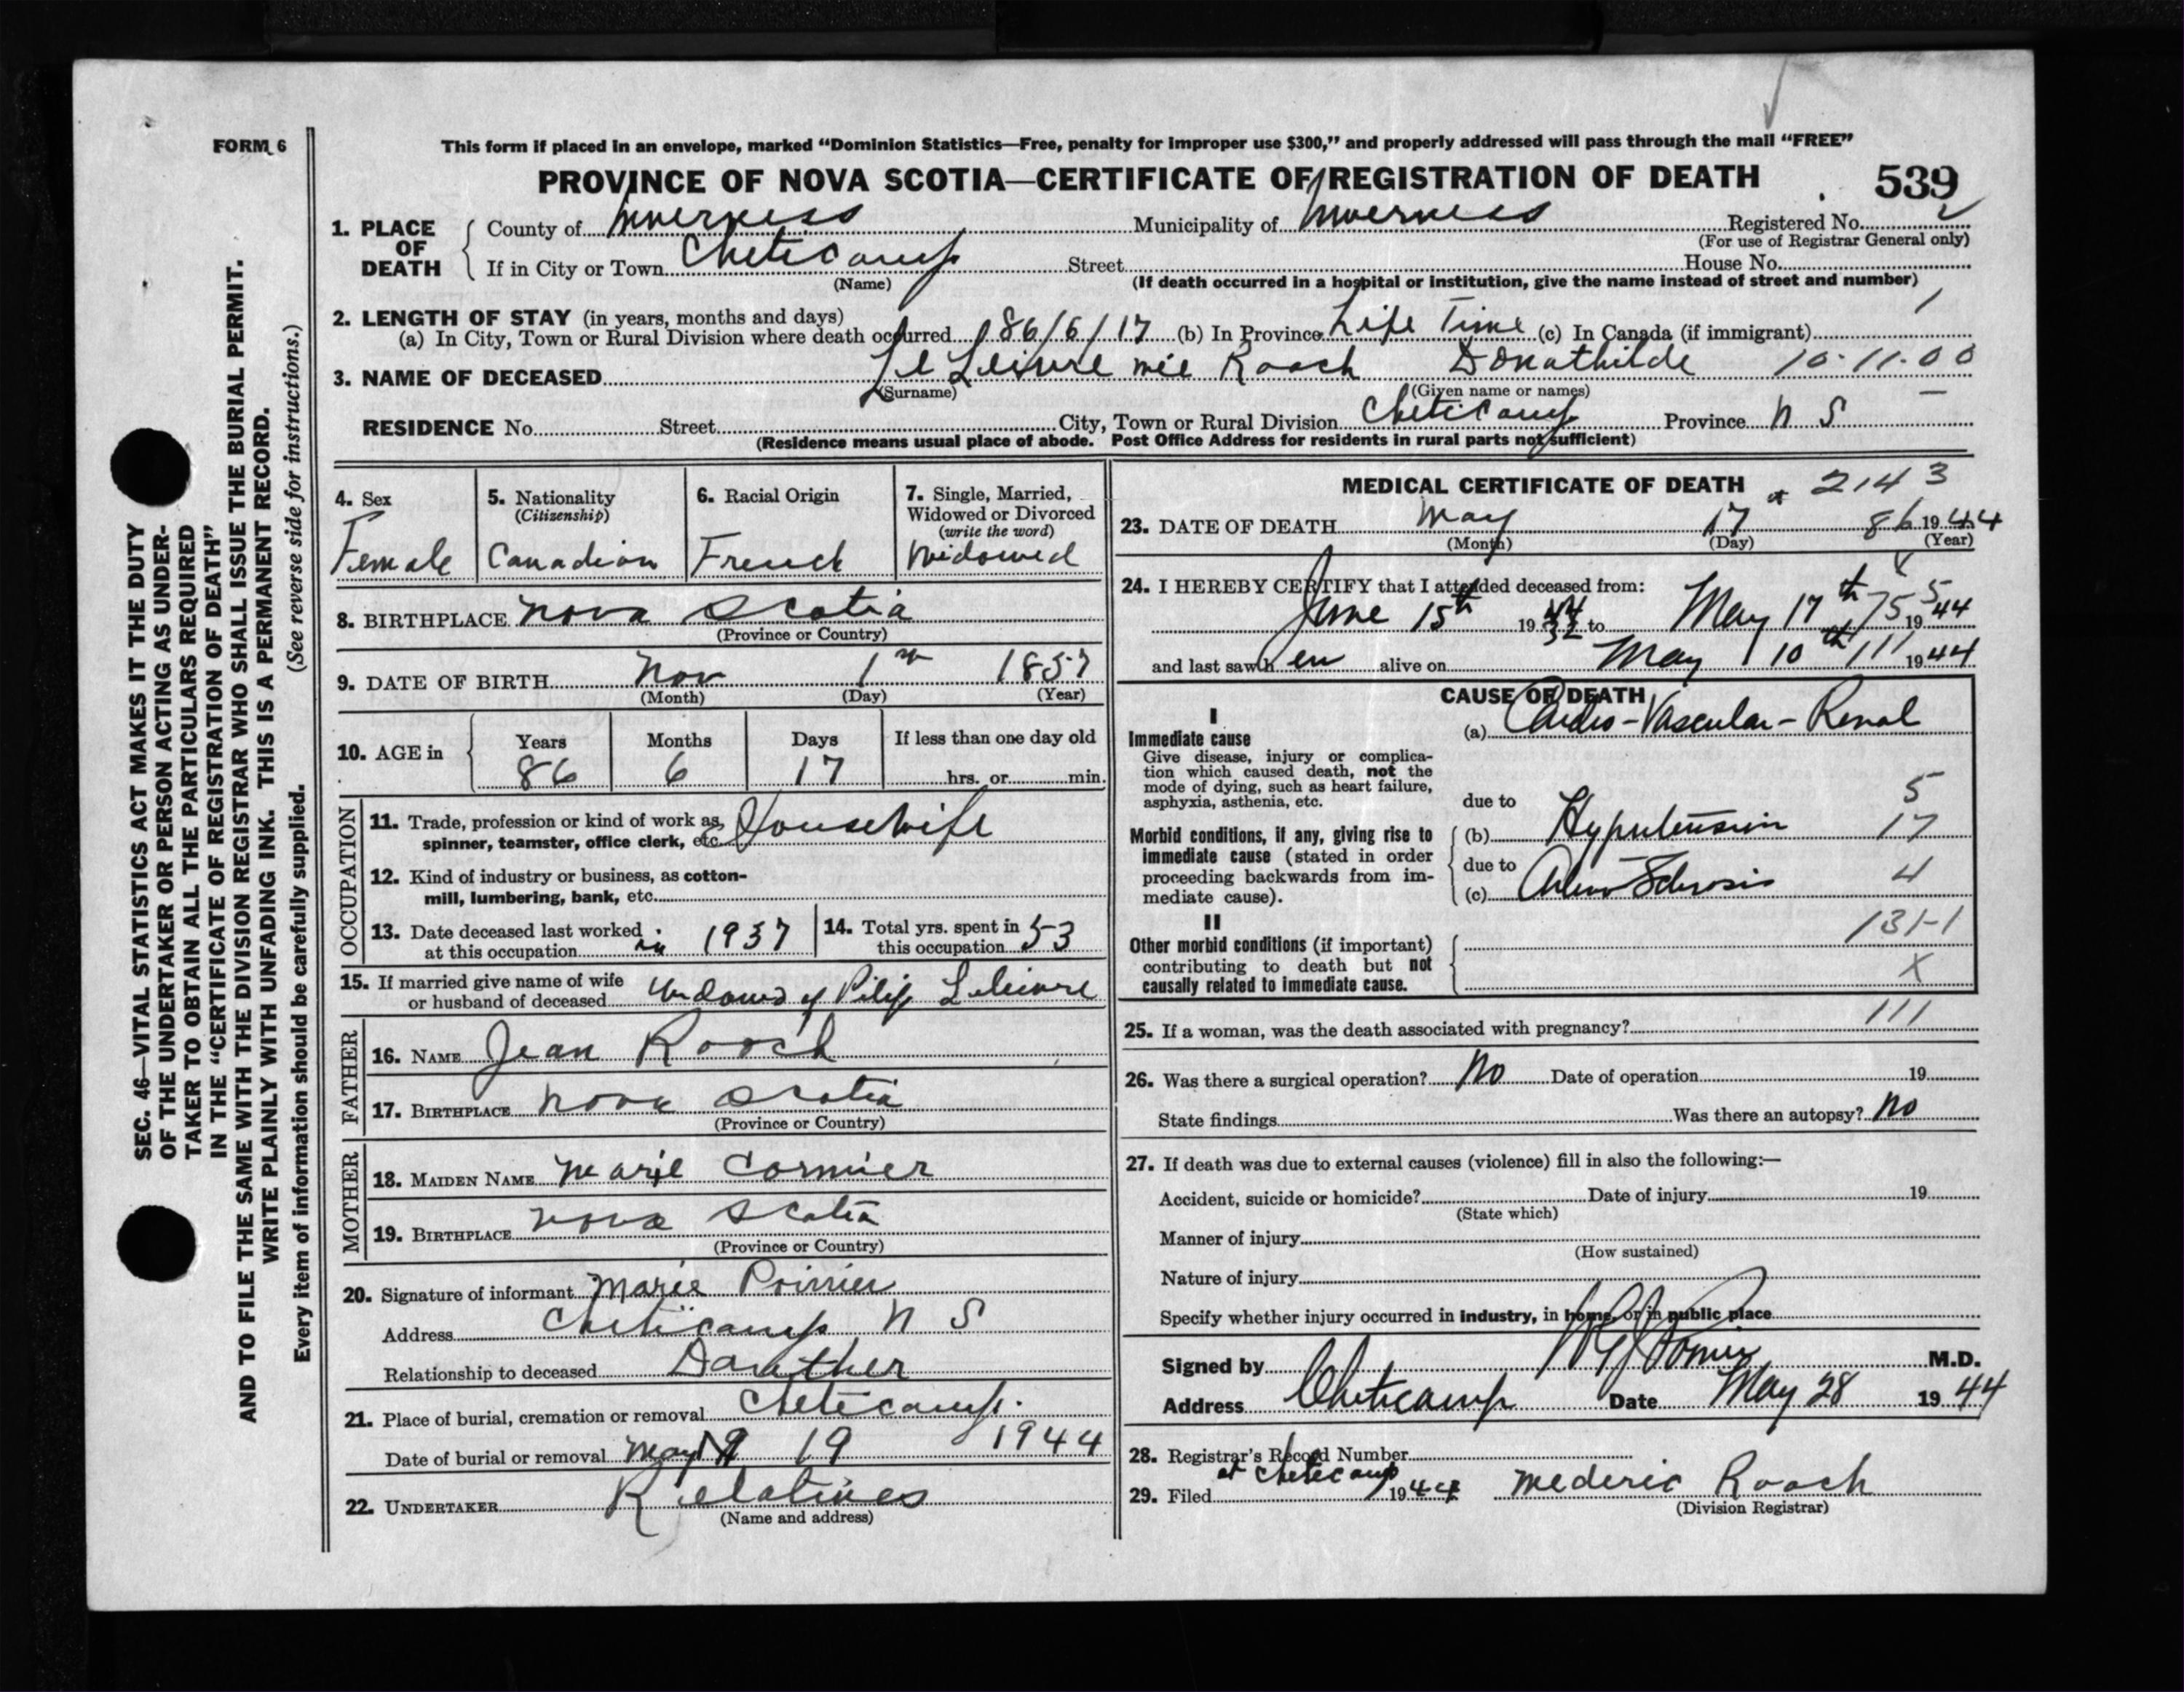 FORM 6
This form if placed in an envelope, marked "Dominion Statistics—Free, penalty for improper use $300," and properly addressed will pass through the mail "FREE"
PROVINCE OF NOVA SCOTIA—CERTIFICATE OF REGISTRATION OF DEATH 539
1. PLACE OF DEATH County of Inverness Municipality of Inverness Registered No.
(For use of Registrar General only)
If in City or Town Cheticamp Street House No.
(Name) (If death occurred in a hospital or institution, give the name instead of street and number)
2. LENGTH OF STAY (in years, months and days)
(a) In City, Town or Rural Division where death occurred 86/6/17 (b) In Province Life Time (c) In Canada (if immigrant)
3. NAME OF DECEASED Le Leivre née Roach Donathilde 10-11-00
(Surname) (Given name or names)
RESIDENCE No. Street City, Town or Rural Division Cheticamp Province N S
(Residence means usual place of abode. Post Office Address for residents in rural parts not sufficient)
4. Sex
Female
5. Nationality
(Citizenship)
Canadian
6. Racial Origin
French
7. Single, Married,
Widowed or Divorced
(write the word)
Widowed
8. BIRTHPLACE Nova Scotia
(Province or Country)
9. DATE OF BIRTH Nov 1 1857
(Month) (Day) (Year)
10. AGE in Years Months Days If less than one day old
86 6 17 hrs. or min.
OCCUPATION
11. Trade, profession or kind of work as
spinner, teamster, office clerk, etc. Housewife
12. Kind of industry or business, as cotton-
mill, lumbering, bank, etc.
13. Date deceased last worked
at this occupation in 1937
14. Total yrs. spent in
this occupation 53
15. If married give name of wife
or husband of deceased Widowed of Pilip Leleivre
FATHER
16. NAME Jean Roach
17. BIRTHPLACE Nova Scotia
(Province or Country)
MOTHER
18. MAIDEN NAME Marie Cormier
19. BIRTHPLACE Nova Scotia
(Province or Country)
20. Signature of informant Marie Poirier
Address Cheticamp N S
Relationship to deceased Dauther
21. Place of burial, cremation or removal Cheticamp.
Date of burial or removal May 19 1944
22. UNDERTAKER Relatives
(Name and address)
MEDICAL CERTIFICATE OF DEATH 2143
23. DATE OF DEATH May 17 86 1944
(Month) (Day) (Year)
24. I HEREBY CERTIFY that I attended deceased from:
June 15th 19 to May 17th 75 5 1944
and last saw her alive on May 10th 111 1944
CAUSE OF DEATH
I
Immediate cause
Give disease, injury or complica-
tion which caused death, not the
mode of dying, such as heart failure,
asphyxia, asthenia, etc.
(a) Cardio-Vascular-Renal
due to 5
Morbid conditions, if any, giving rise to
immediate cause (stated in order
proceeding backwards from im-
mediate cause).
(b) Hypertension 17
due to 4
(c) Arterio-Sclerosis
II
Other morbid conditions (if important)
contributing to death but not
causally related to immediate cause.
131-1
X
25. If a woman, was the death associated with pregnancy? 111
26. Was there a surgical operation? No Date of operation 19
State findings Was there an autopsy? No
27. If death was due to external causes (violence) fill in also the following:—
Accident, suicide or homicide? Date of injury 19
(State which)
Manner of injury
(How sustained)
Nature of injury
Specify whether injury occurred in industry, in home, or in public place
Signed by Poirier M.D.
Address Cheticamp Date May 28 1944
28. Registrar's Record Number
29. Filed at Cheticamp 1944 Mederic Roach
(Division Registrar)
SEC. 46—VITAL STATISTICS ACT MAKES IT THE DUTY
OF THE UNDERTAKER OR PERSON ACTING AS UNDER-
TAKER TO OBTAIN ALL THE PARTICULARS REQUIRED
IN THE "CERTIFICATE OF REGISTRATION OF DEATH"
AND TO FILE THE SAME WITH THE DIVISION REGISTRAR WHO SHALL ISSUE THE BURIAL PERMIT.
WRITE PLAINLY WITH UNFADING INK. THIS IS A PERMANENT RECORD.
Every item of information should be carefully supplied. (See reverse side for instructions.)